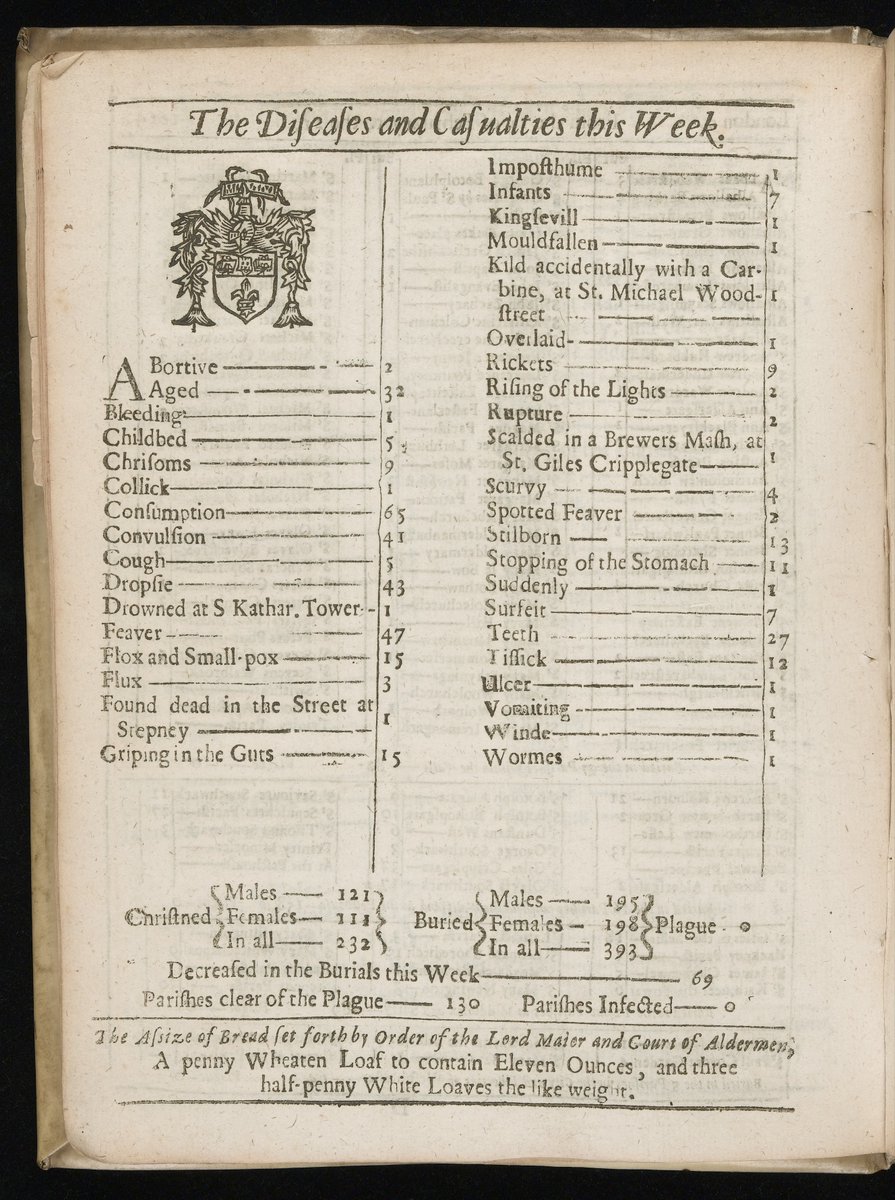 The Diſeaſes and Caſualties this Week.
ABortive 2
Aged 32
Bleeding 1
Childbed 5
Chriſoms 9
Collick 1
Conſumption 65
Convulſion 41
Cough 5
Dropſie 43
Drowned at S Kathar. Tower 1
Feaver 47
Flox and Small-pox 15
Flux 3
Found dead in the Street at
Stepney 1
Griping in the Guts 15
Impoſthume 1
Infants 7
Kingſevill 1
Mouldfallen 1
Kild accidentally with a Car-
bine, at St. Michael Wood- 1
ſtreet
Overlaid 1
Rickets 9
Riſing of the Lights 2
Rupture 2
Scalded in a Brewers Maſh, at
St. Giles Cripplegate 1
Scurvy 4
Spotted Feaver 2
Stilborn 13
Stopping of the Stomach 11
Suddenly 1
Surfeit 7
Teeth 27
Tiſſick 12
Ulcer 1
Vomiting 1
Winde 1
Wormes 1
Chriſtned Males 121 Females 111 In all 232
Buried Males 195 Females 198 In all 393 Plague 0
Decreaſed in the Burials this Week 69
Pariſhes clear of the Plague 130 Pariſhes Infected 0
The Aſsize of Bread ſet forth by Order of the Lord Maier and Court of Aldermen,
A penny Wheaten Loaf to contain Eleven Ounces, and three
half-penny White Loaves the like weight.